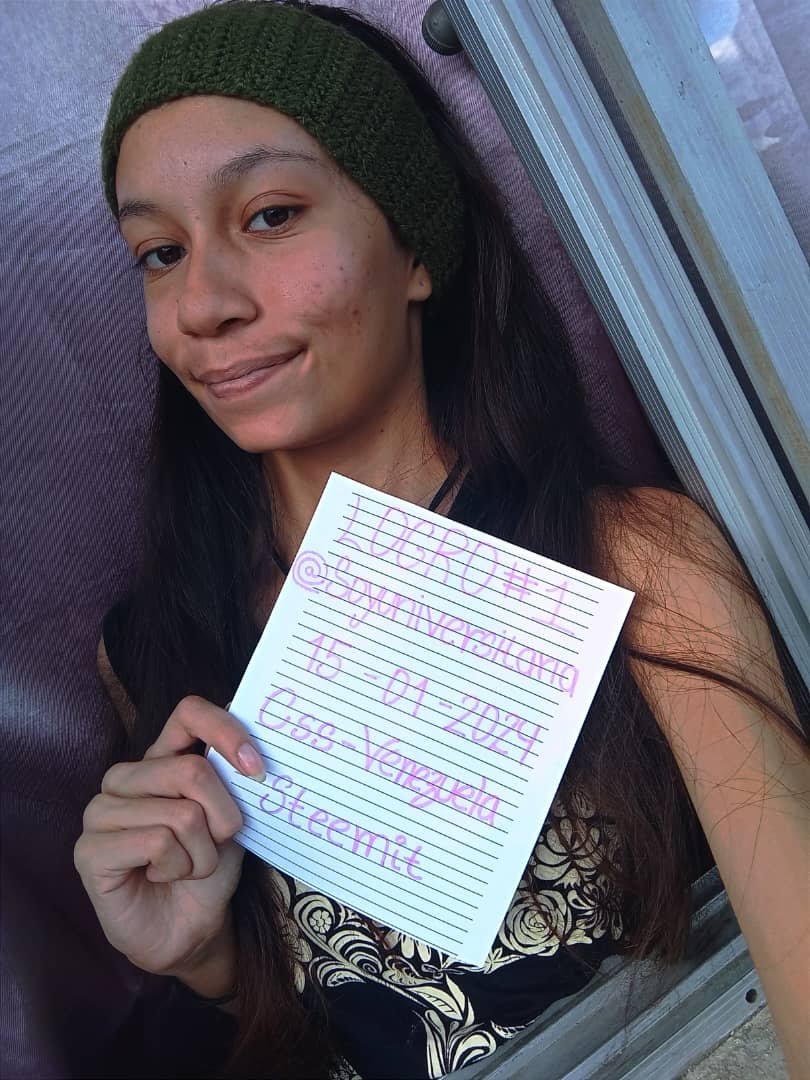 LOGRO #1
@Soyuniversitaria
15-01-2024
Css-Venezuela
Steemit